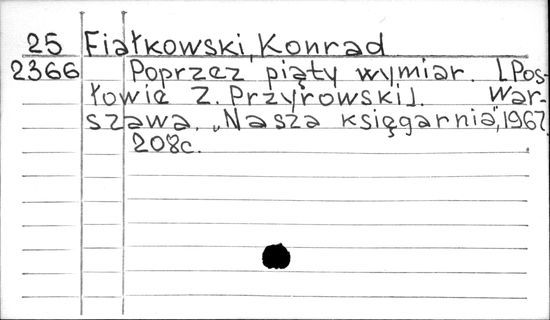 25 Fiałkowski, Konrad
2366 Poprzez piąty wymiar. [Pos-
łowie Z. Przyrowski]. War-
szawa, „Nasza księgarnia”, 1967.
208c.